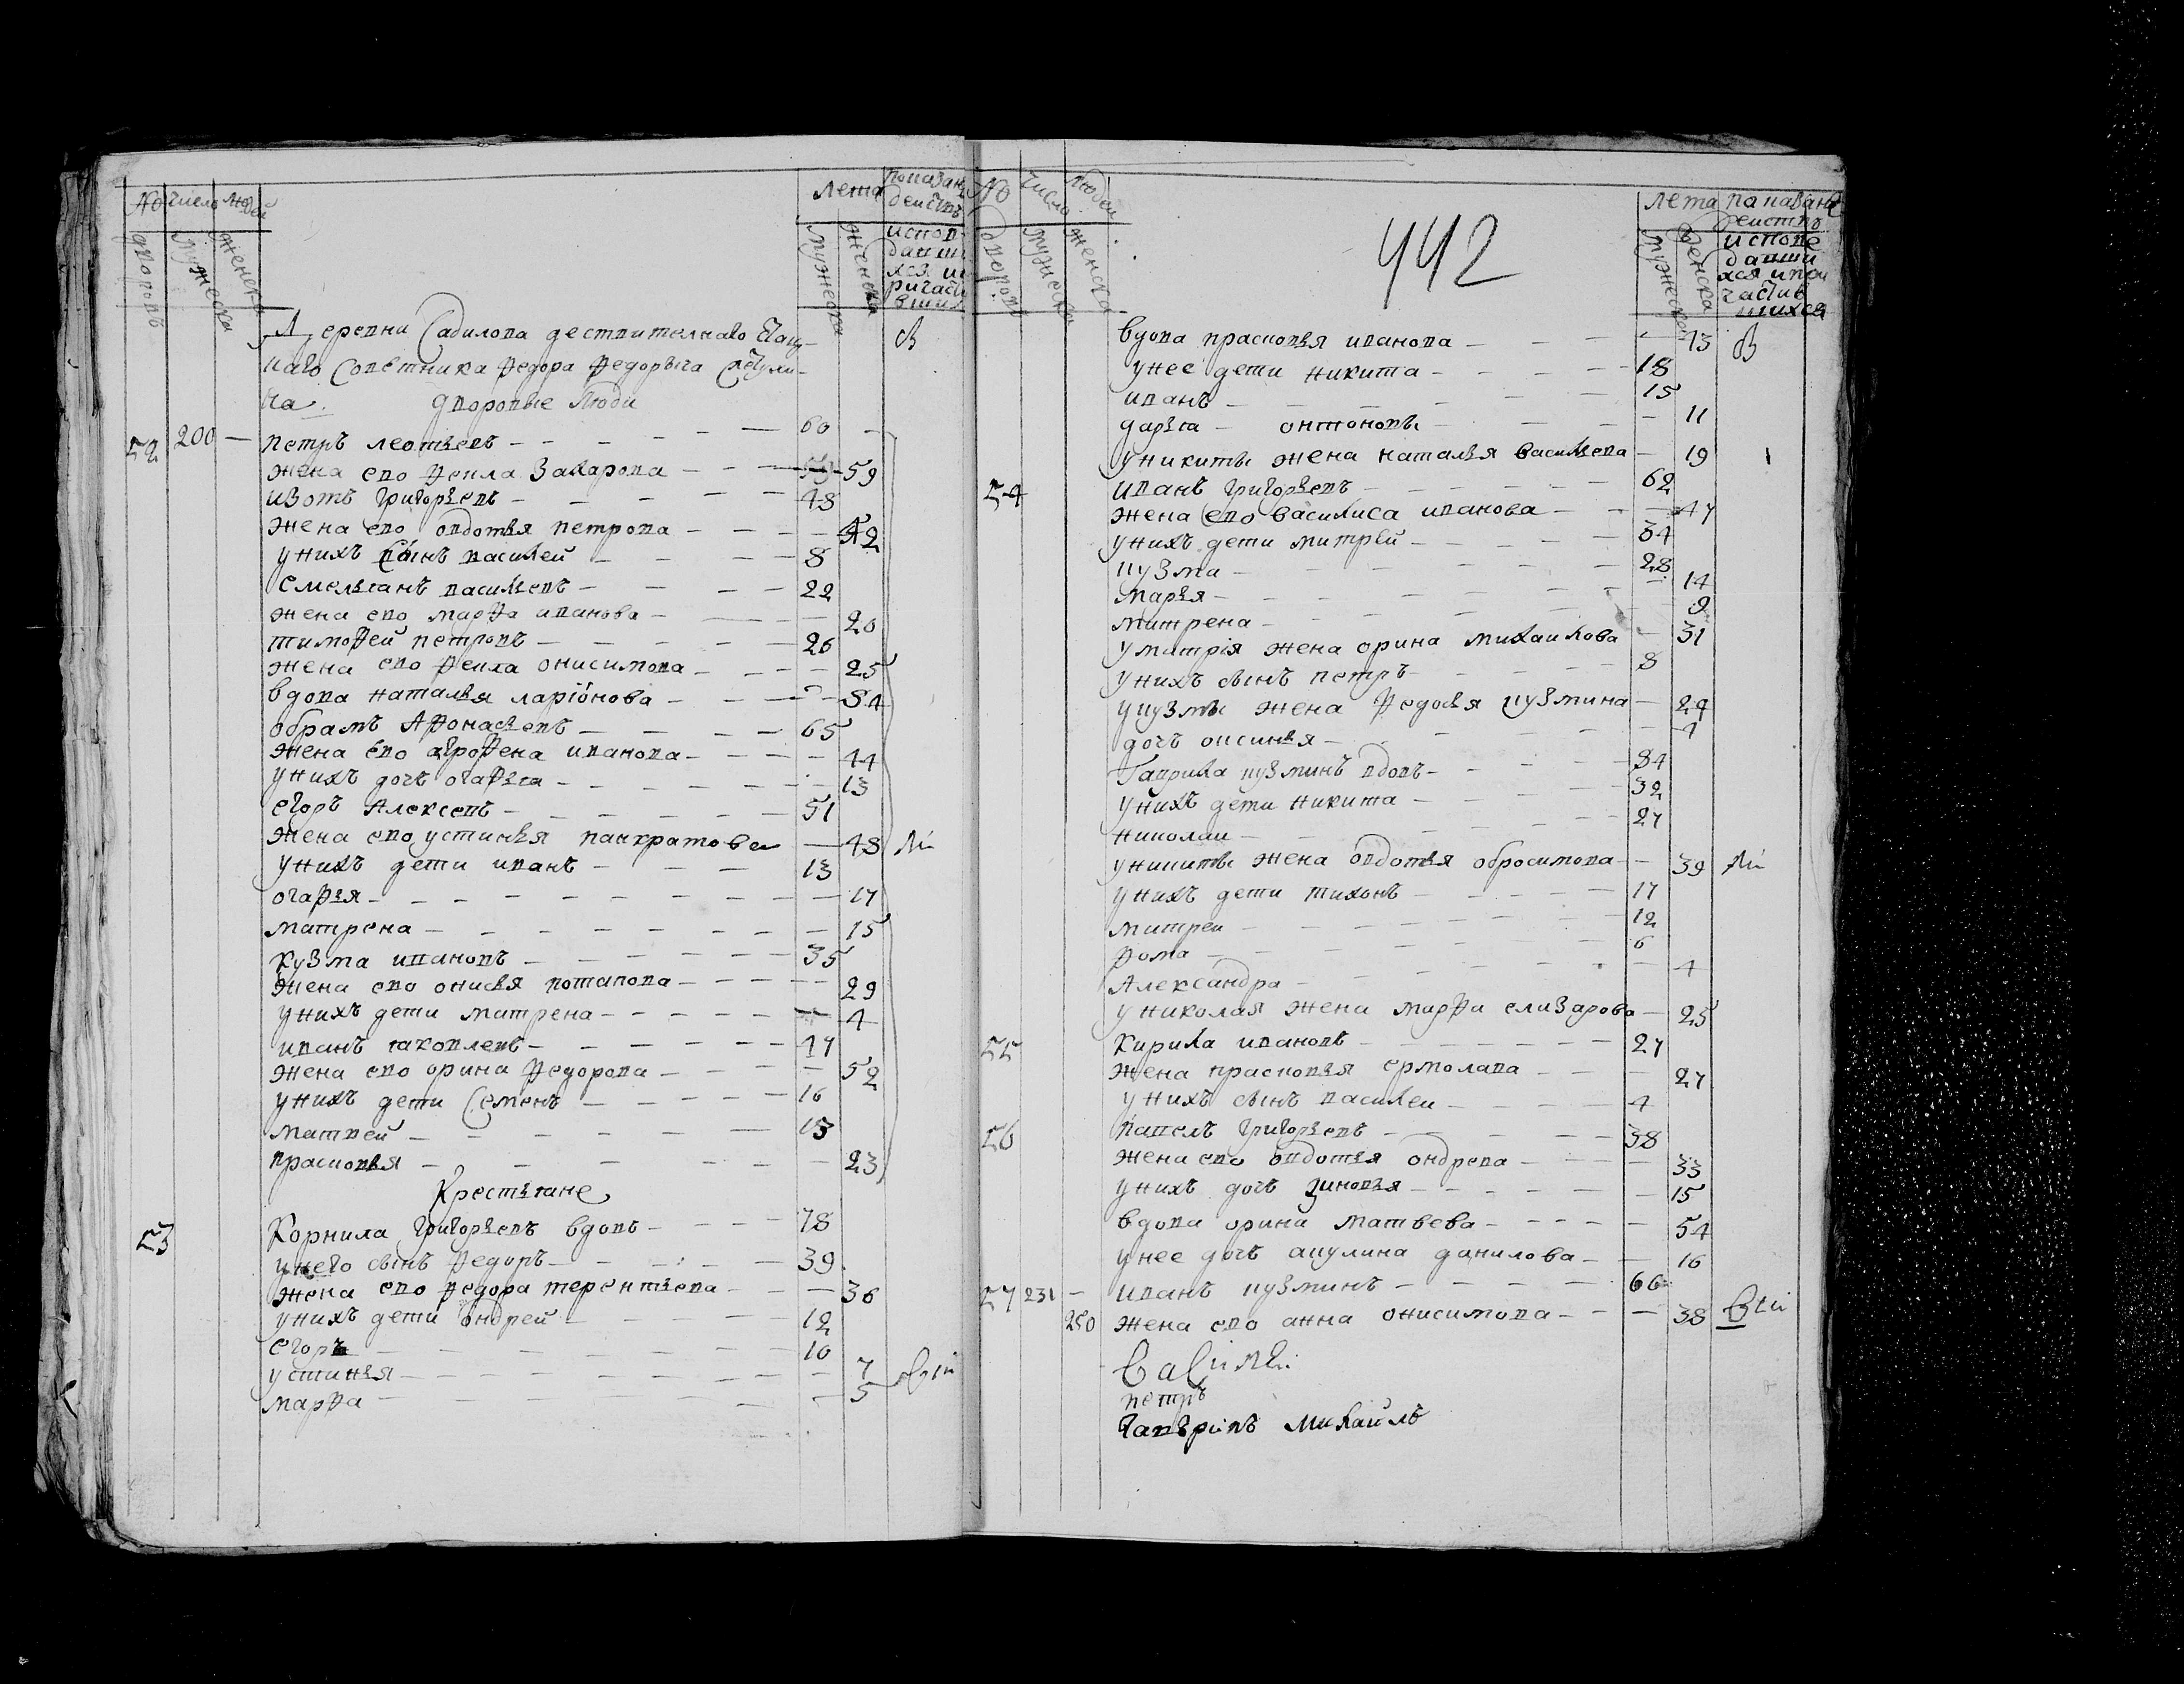 № число людей лета показан. действ
дворовъ мужеска женска мужеска женска испов
данши
хся и п
ричасти
вших
Деревни Садилова дествителнаго Стац
каго Советника Федора Федорыча
ча. дворовые люди В
52 200 — петръ леонтьевъ — 60
жена ево Фекла Захарова — 59
изотъ григорьевъ — 48
жена ево овдотья петрова — 42
унихъ сынъ василей — 8
емельянъ васильевъ — 22
жена ево марфа иванова — 20
тимофей петровъ — 26
жена ево Фекла онисимова — 25
вдова наталья ларiонова — 54
обрамъ Афонасьевъ — 65
жена ево аграфена иванова — 44
унихъ дочь огафья — 13
егоръ Алексевъ — 51
жена ево устинья панкратова — 48
унихъ дети иванъ — 13
огафья — 17
матрена — 15
кузма ивановъ — 35
жена ево онисья потапова — 29
унихъ дети матрена — 4
иванъ яковлевъ — 47
жена ево орина Федорова — 52
унихъ дети Семенъ — 16
матвей — 13
прасковья — 23
Крестьяне
53 Корнила григорьевъ вдовъ — 78
унего сынъ Федоръ — 39
жена ево Федора терентьева — 36
унихъ дети ондрей — 12
егоръ — 10
устинья — 7
марфа — 5
№ число людей лета паказане
деиствъ
дворовъ мужеска женска мужеска женска испове
данши
хся ипри
частив
шихся
442
вдова прасковья иванова — 43 В
унее дети никита — 18
иванъ — 15
дарья — онтоновы — 11
уникиты жена наталья васильева — 19
54 иванъ григорьевъ — 62
жена ево василиса иванова — 47
унихъ дети митрей — 34
кузма — 28
марья — 14
митрена — 9
умитрiя жена орина михаилова — 31
унихъ сынъ петръ — 8
укузмы жена Федосья кузмина — 24
дочь оксинья — 4
Гаврила кузминъ вдовъ — 54
унихъ дети никита — 32
николаи — 27
уникиты жена овдотья обросимова — 39
унихъ дети тихонъ — 17
митреи — 12
Фома — 6
Александра — 4
униколая жена марфа елизарова — 25
55 Кирила ивановъ — 27
жена прасковья ермолава — 27
унихъ сынъ василеи — 4
56 павелъ григорьевъ — 38
жена ево овдотья ондрева — 33
унихъ дочь зиновья — 15
вдова орина матвева — 54
унее дочь акулина данилова — 16
57 231 — иванъ кузминъ — 66
250 жена ево анна онисимова — 38
василеи
петръ
гавърилъ михаилъ